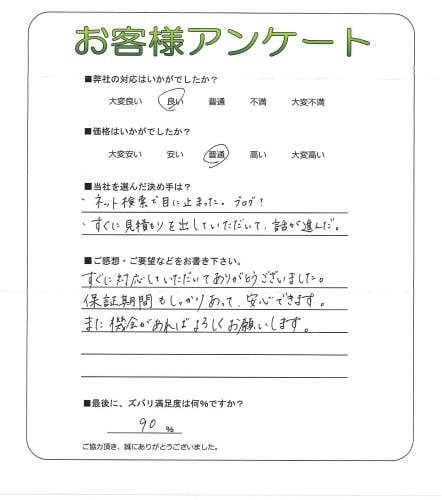 お客様アンケート
■弊社の対応はいかがでしたか？
大変良い　良い　普通　不満　大変不満
■価格はいかがでしたか？
大変安い　安い　普通　高い　大変高い
■当社を選んだ決め手は？
・ネット検索で目に止まった。ブログ！
・すぐに見積もりを出していただいて、話が進んだ。
■ご感想・ご要望などをお書き下さい。
すぐに対応していただいてありがとうございました。
保証期間もしっかりあって、安心できます。
また機会があればよろしくお願いします。
■最後に、ズバリ満足度は何%ですか？
90 %
ご協力頂き、誠にありがとうございました。